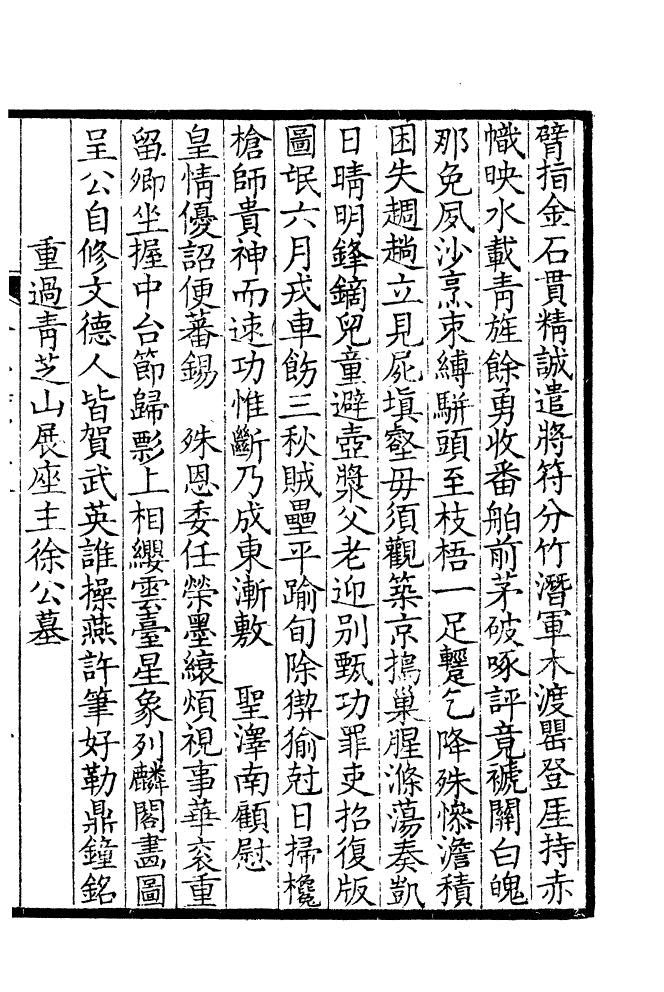 臂指金石貫精誠遣將符分竹潛軍木渡罌登厓持赤
幟映水載青旌餘勇收番舶前茅破啄評竟褫關白魄
那免夙沙烹束縛駢頭至枝梧一足躄乞降殊慘澹積
困失趜趟立見屍塡壑毋須觀築京搗巢腥滌蕩奏凱
日晴明鋒鏑兒童避壺漿父老迎别甄功罪吏招復版
圖氓六月戎車飭三秋賊壘平踰旬除猰㺄尅日掃欃
槍師貴神而速功惟斷乃成東漸敷　聖澤南顧慰
皇情優詔便蕃錫　殊恩委任榮墨縗煩視事華衮重
留卿坐握中台節歸影上相纓雲臺星象列麟閣畵圖
呈公自修文德人皆賀武英誰操燕許筆好勒鼎鐘銘
重過青芝山展座主徐公墓